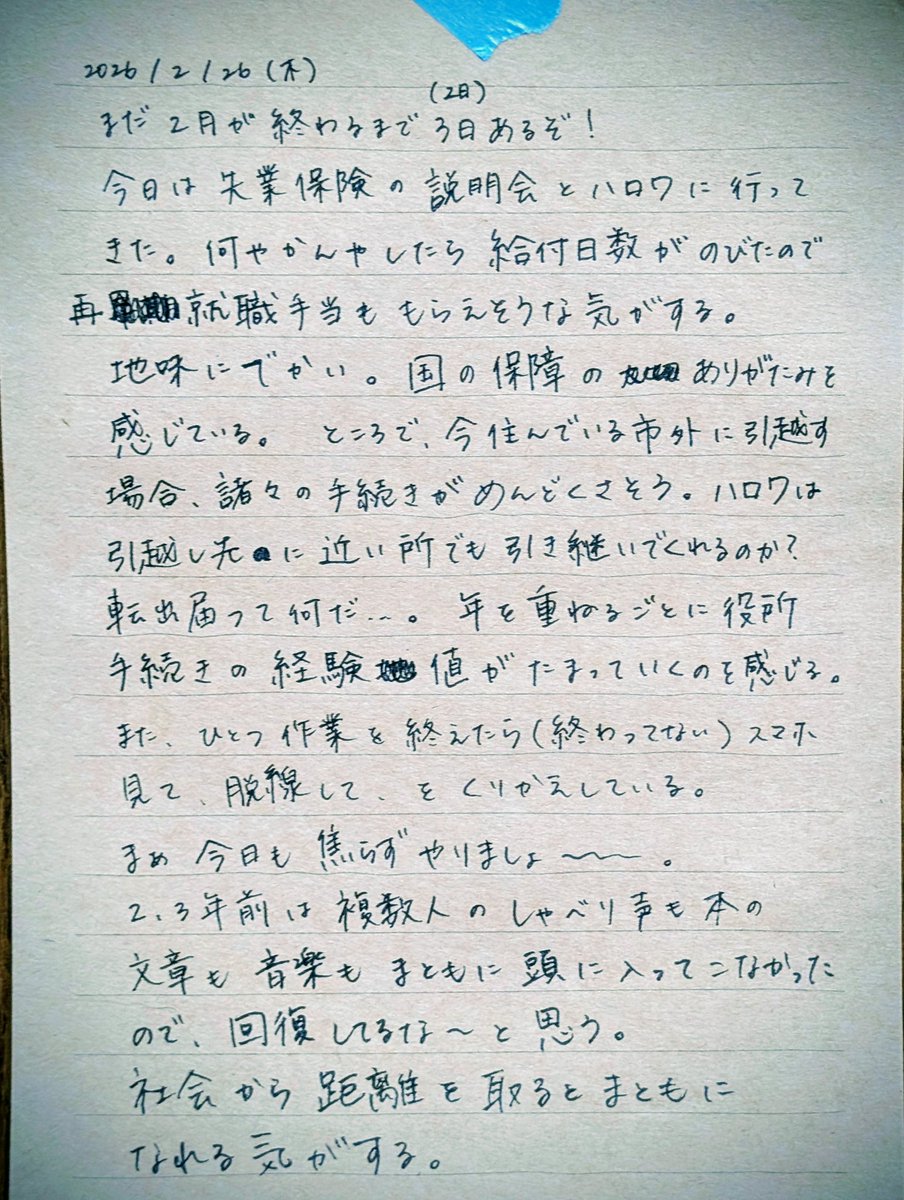 2026/2/26(木)
(2日)
まだ2月が終わるまで3日あるぞ!
今日は失業保険の説明会とハロワに行って
きた。何やかんやしたら給付日数がのびたので
再就職手当ももらえそうな気がする。
地味にでかい。国の保障のありがたみを
感じている。ところで、今住んでいる市外に引越す
場合、諸々の手続きがめんどくさそう。ハロワは
引越し先に近い所でも引き継いでくれるのか?
転出届って何だ…。年を重ねるごとに役所
手続きの経験値がたまっていくのを感じる。
また、ひとつ作業を終えたら(終わってない)スマホ
見て、脱線して、をくりかえしている。
まぁ今日も焦らずやりましょ〜〜。
2,3年前は複数人のしゃべり声も本の
文章も音楽もまともに頭に入ってこなかった
ので、回復してるな〜と思う。
社会から距離を取るとまともに
なれる気がする。